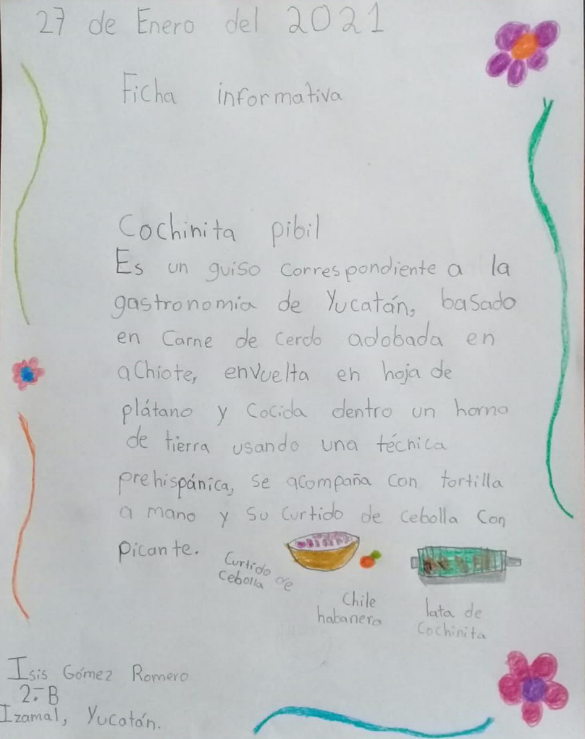 27 de Enero del 2021
Ficha informativa
Cochinita pibil
Es un guiso correspondiente a la
gastronomía de Yucatán, basado
en Carne de Cerdo adobada en
achiote, envuelta en hoja de
plátano y Cocida dentro un horno
de tierra usando una técnica
prehispánica, se acompaña con tortilla
a mano y su curtido de cebolla con
picante.
Curtido de
Cebolla
Chile
habanero
lata de
Cochinita
Isis Gómez Romero
2.- B
Izamal, Yucatán.